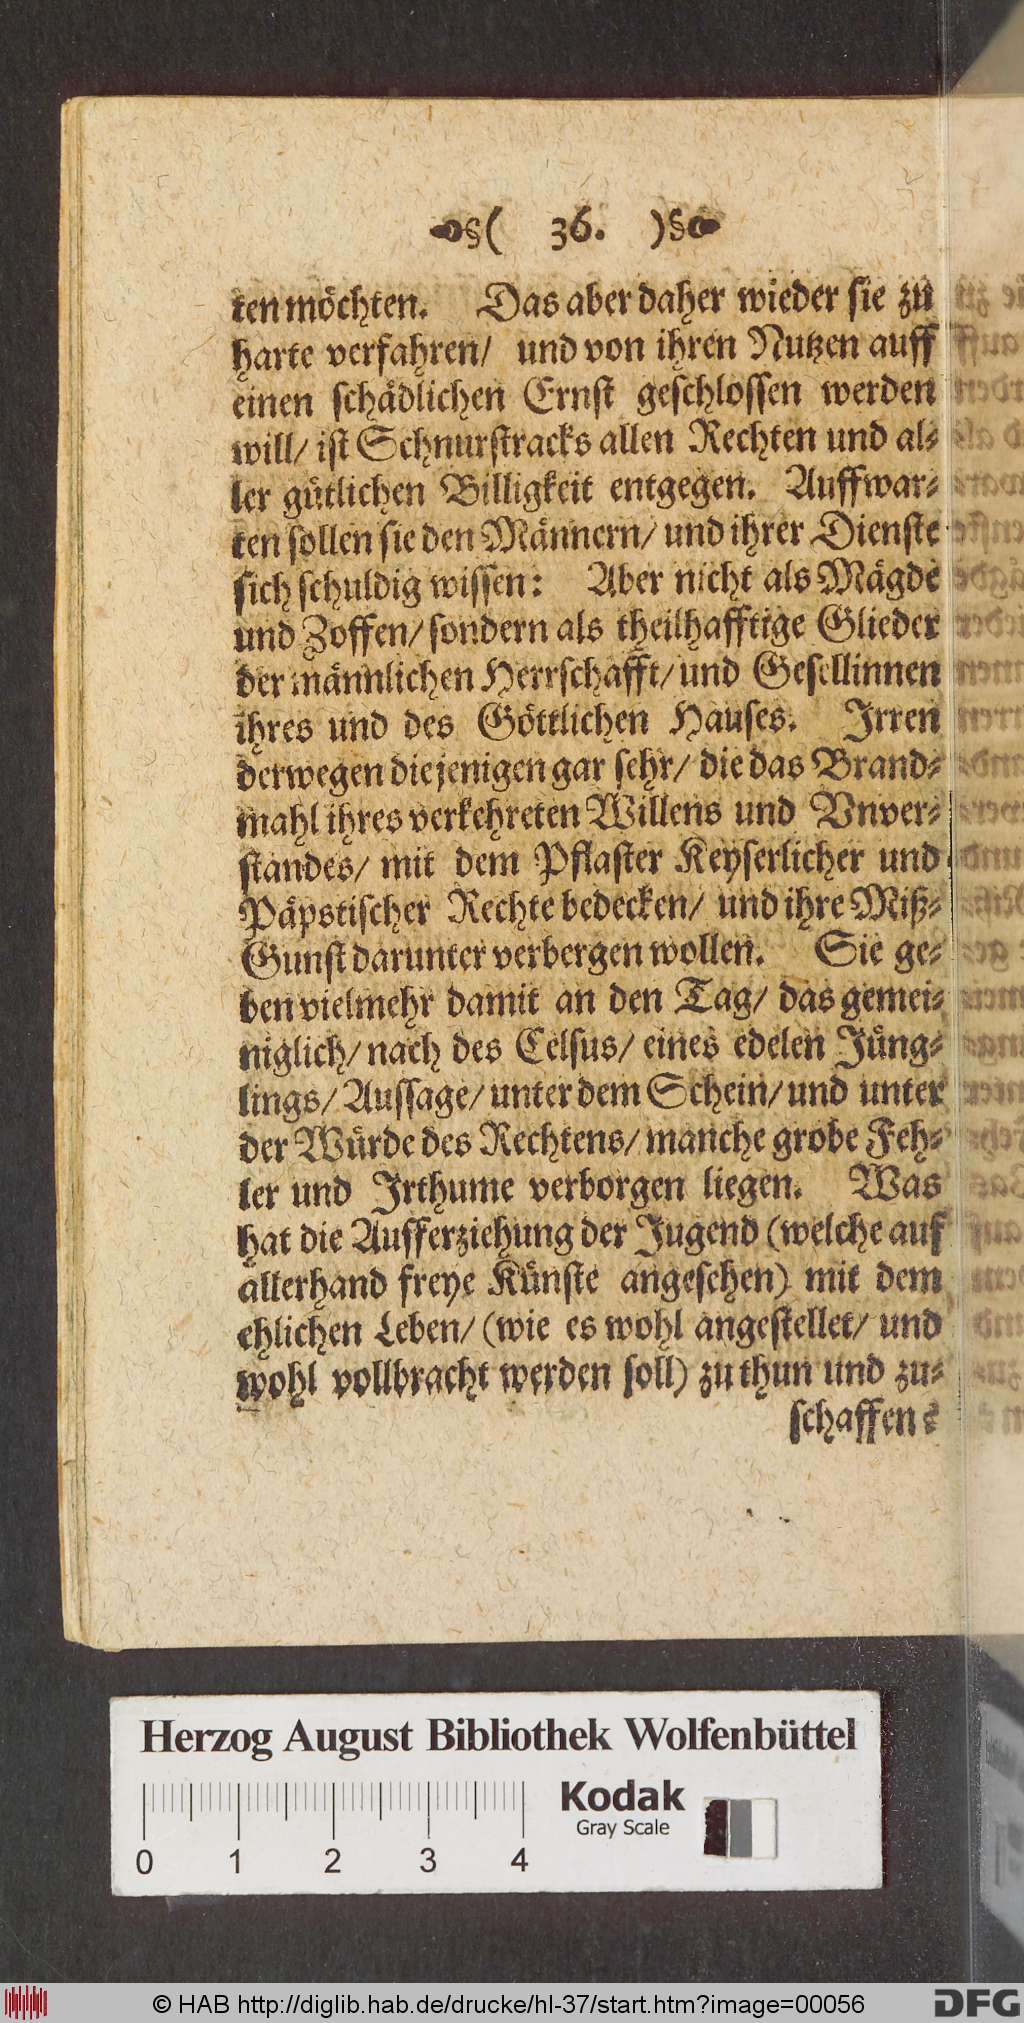 §( 36. )§
ten möchten. Das aber daher wieder sie zu
harte verfahren/ und von ihren Nutzen auff
einen schädlichen Ernst geschlossen werden
will/ ist Schnurstracks allen Rechten und al-
ler gütlichen Billigkeit entgegen. Auffwar-
ten sollen sie den Männern/ und ihrer Dienste
sich schuldig wissen: Aber nicht als Mägde
und Zoffen/ sondern als theilhafftige Glieder
der männlichen Herrschafft/ und Gesellinnen
ihres und des Göttlichen Hauses. Irren
derwegen diejenigen gar sehr/ die das Brand-
mahl ihres verkehreten Willens und Vnver-
standes/ mit dem Pflaster Keyserlicher und
Päpstischer Rechte bedecken/ und ihre Miß-
Gunst darunter verbergen wollen. Sie ge-
ben vielmehr damit an den Tag/ das gemei-
niglich/ nach des Celsus/ eines edelen Jüng-
lings/ Aussage/ unter dem Schein/ und unter
der Würde des Rechtens/ manche grobe Feh-
ler und Irthume verborgen liegen. Was
hat die Aufferziehung der Jugend (welche auf
allerhand freye Künste angesehen) mit dem
ehlichen Leben/ (wie es wohl angestellet/ und
wohl vollbracht werden soll) zu thun und zu-
schaffen?
Herzog August Bibliothek Wolfenbüttel
Kodak
Gray Scale
0 1 2 3 4
© HAB http://diglib.hab.de/drucke/hl-37/start.htm?image=00056
DFG